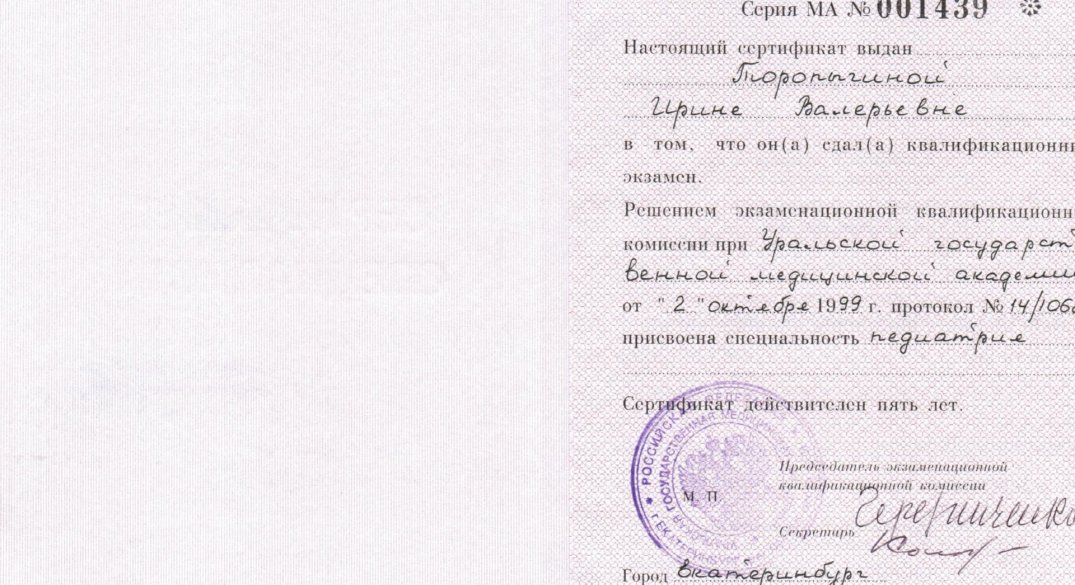 Серия МА № 001439
Настоящий сертификат выдан
Торопыгиной
Ирине Валерьевне
в том, что он(а) сдал(а) квалификационн
экзамен.
Решением экзаменационной квалификационн
комиссии при Уральской государст
венной медицинской академи
от "2" октября 1999 г. протокол № 14/106
присвоена специальность педиатрия
Сертификат действителен пять лет.
РОССИЙСКАЯ ФЕДЕРА
ГОСУДАРСТВЕННАЯ МЕДИЦИНСК
М. П.
Председатель экзаменационной
квалификационной комиссии
Секретарь
Город Екатеринбург